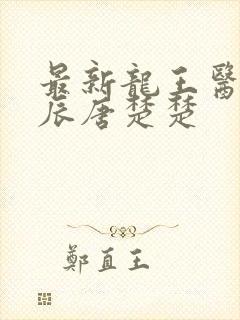 最新龍王醫
辰唐楚楚
鄭直王